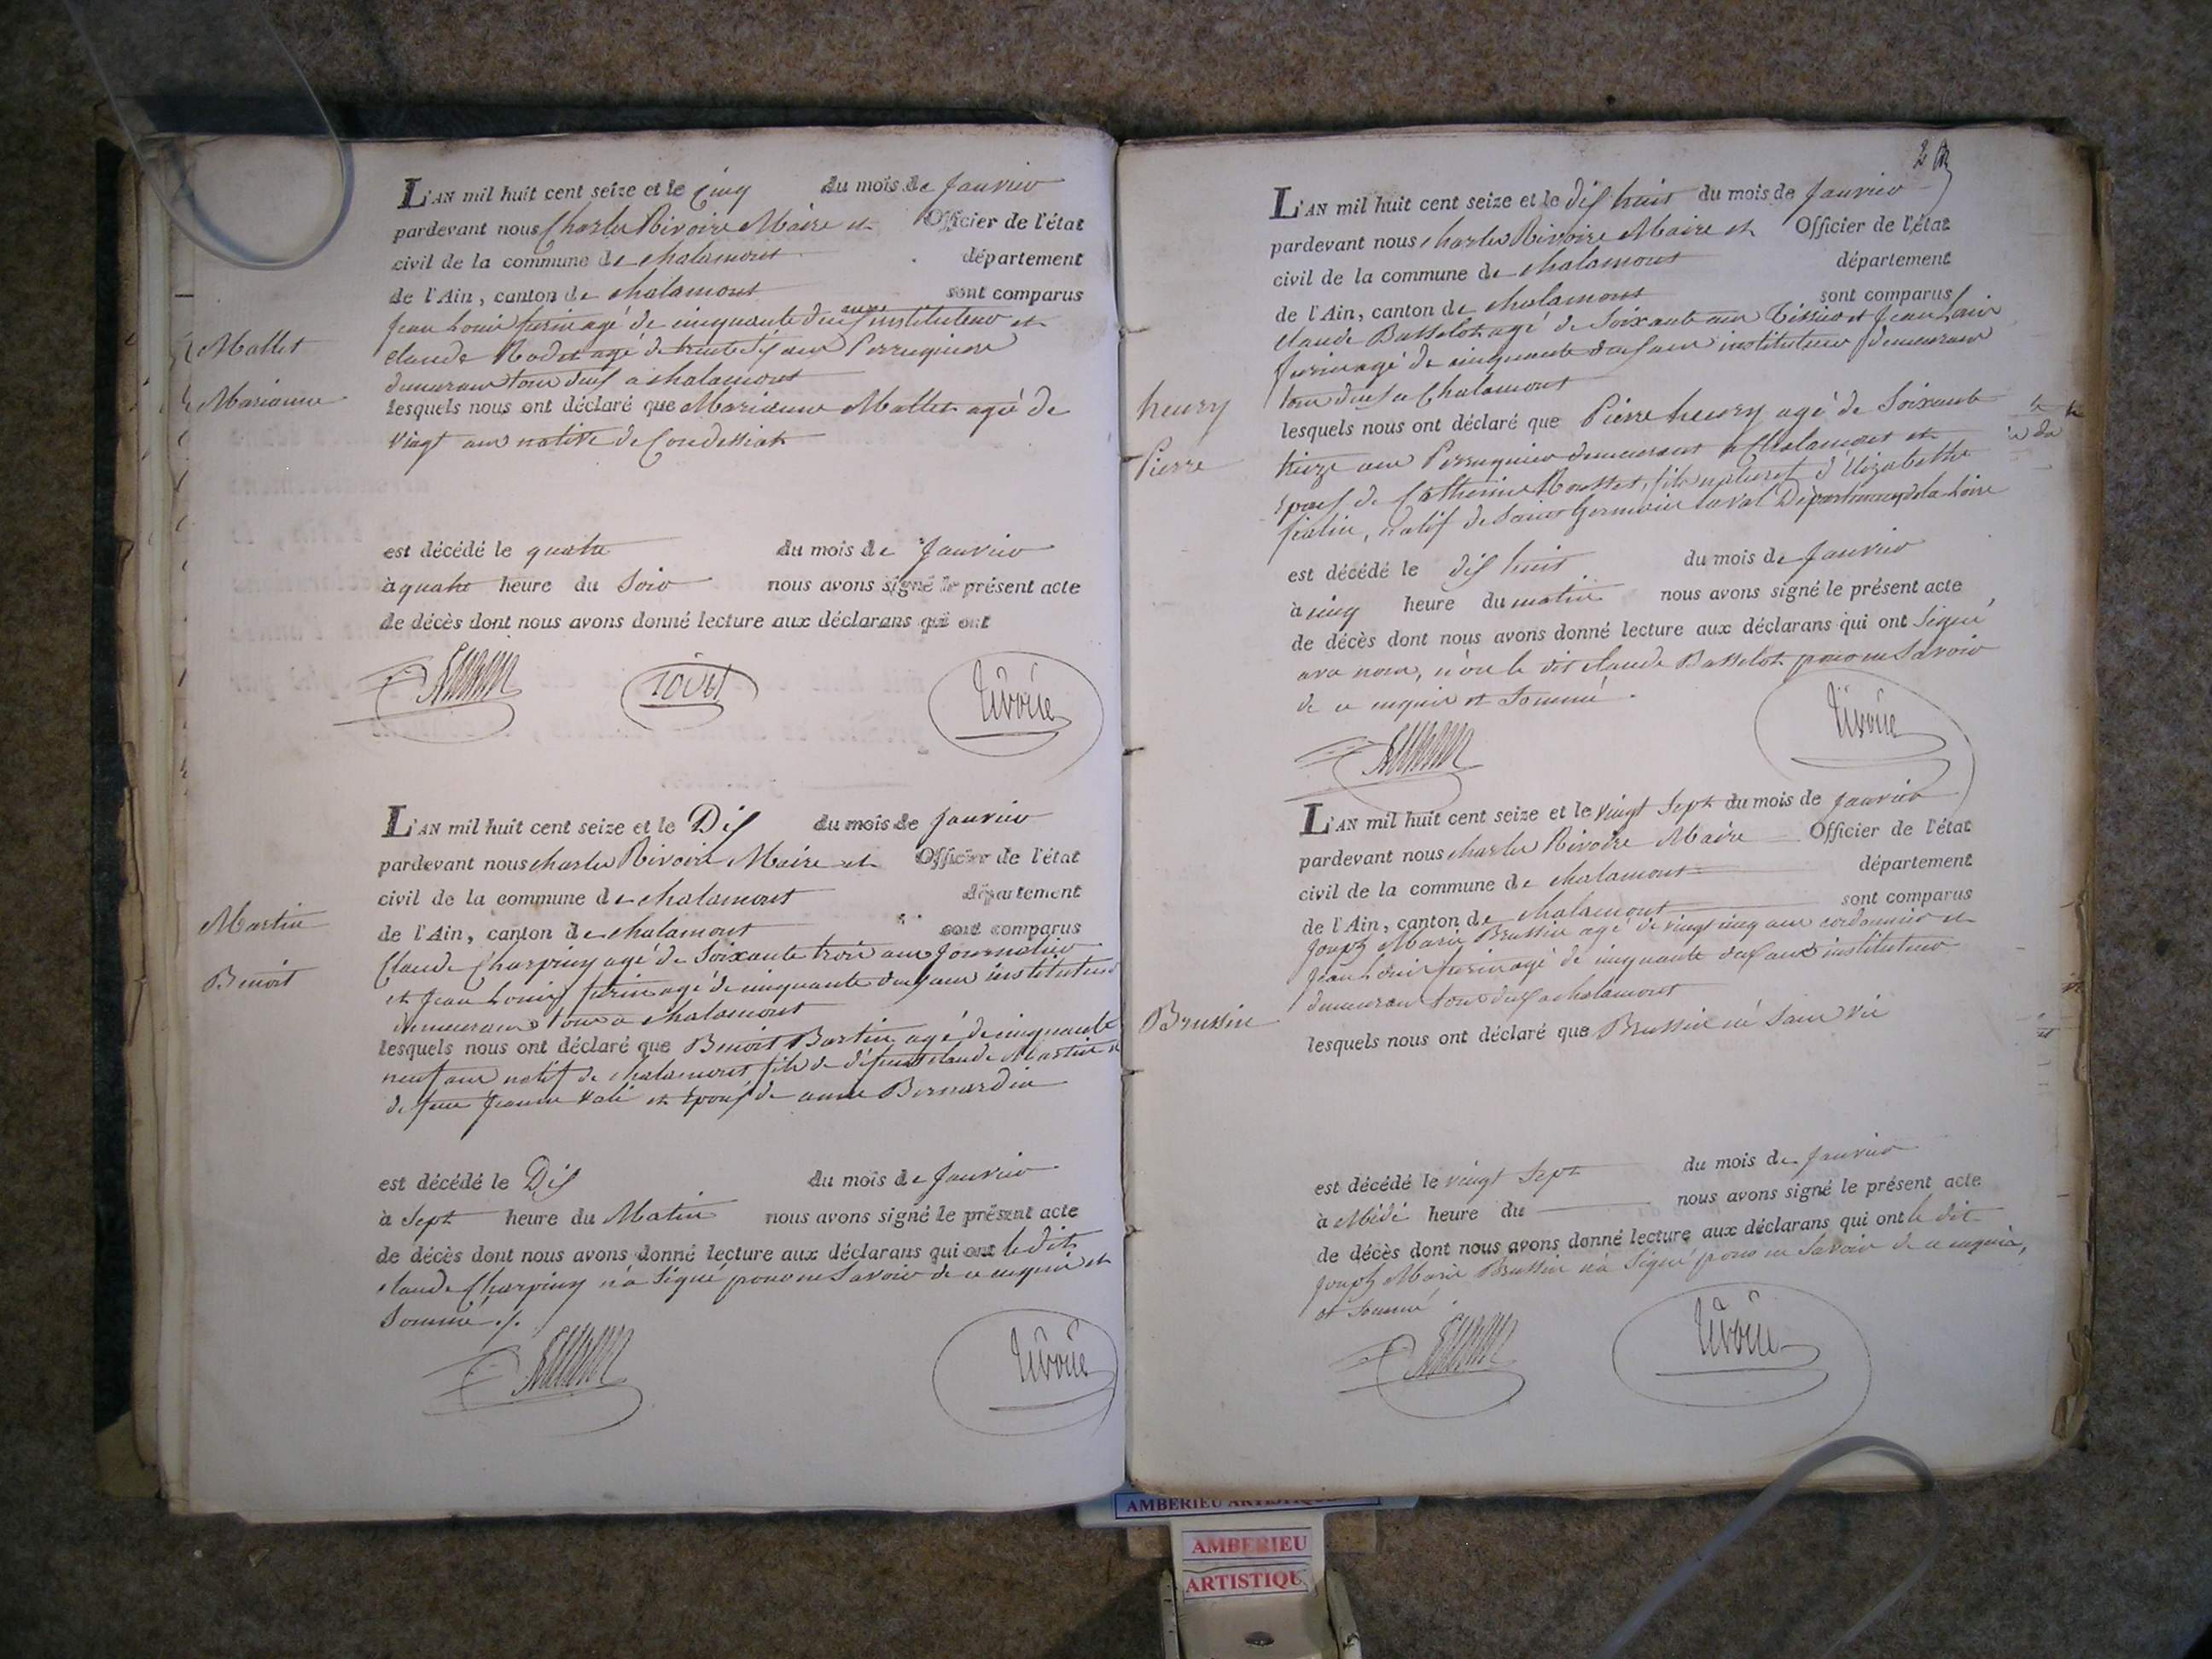 L'AN mil huit cent seize et le Cinq du mois de Janvier
pardevant nous Charles Rivoire Maire et Officier de l'état
civil de la commune de chalamont département
de l'Ain, canton de chalamont sont comparus
Jean Louis furin agé de cinquante deux ans instituteur et
Mallet
claude Rodet agé de trente six ans Perruquier
demeurans tous deux a chalamont
Marianne
lesquels nous ont déclaré que Marianne Mallet agé de
vingt ans native de Condessiat
est décédé le quatre du mois de Janvier
à quatre heure du Soir nous avons signé le présent acte
de décès dont nous avons donné lecture aux déclarans qui ont
rivoire
L'AN mil huit cent seize et le Dix du mois de Janvier
pardevant nous charles Rivoire Maire et Officier de l'état
civil de la commune de chalamont département
Martin
de l'Ain, canton de chalamont sont comparus
Claude Charpiny agé de Soixante trois ans Journalier
Benoit
et Jean Louis furin agé de cinquante deux ans instituteur
demeurans tous a chalamont
lesquels nous ont déclaré que Benoit Bartin agé de cinquante
neuf ans natif de chalamont fils de défunt claude Martin et
de feue Jeanne Vali et Epoux de anne Bernardin
est décédé le Dix du mois de Janvier
à Sept heure du Matin nous avons signé le présent acte
de décès dont nous avons donné lecture aux déclarans qui ont le dit
claude Charpiny n'a Signé pour ne Savoir de ce enquis et
Sommé ./.
rivoire
2
L'AN mil huit cent seize et le dix huit du mois de Janvier
pardevant nous charles Rivoire Maire et Officier de l'état
civil de la commune de chalamont département
de l'Ain, canton de chalamont sont comparus
claude Basselot agé de Soixante ans Tissier et Jean Louis
furin agé de cinquante deux ans instituteur demeurans
tous deux a Chalamont
henry
lesquels nous ont déclaré que Pierre henry agé de Soixante
Pierre
treize ans Perruquier demeurant a Chalamont et
Epoux de Catherine Rousset, fils naturel d'Elizabethe
fialin, natif de Saint Germain laval Département de la Loire
est décédé le dix huit du mois de Janvier
à cinq heure du matin nous avons signé le présent acte
de décès dont nous avons donné lecture aux déclarans qui ont Signé
avec nous, non le dit claude Basselot pour ne Savoir
de ce enquis et Sommé.
rivoire
L'AN mil huit cent seize et le vingt Sept du mois de Janvier
pardevant nous charles Rivoire Maire Officier de l'état
civil de la commune de chalamont département
de l'Ain, canton de chalamont sont comparus
Joseph Marie Brussin agé de vingt cinq ans cordonnier et
Jean Louis furin agé de cinquante deux ans instituteur
demeurans tous deux a chalamont
Brussin
lesquels nous ont déclaré que Brussin né Sans vie
est décédé le vingt Sept du mois de Janvier
à Midi heure du nous avons signé le présent acte
de décès dont nous avons donné lecture aux déclarans qui ont le dit
Joseph Marie Brussin n'a Signé pour ne Savoir de ce enquis,
et Sommé
rivoire
AMBERIEU ARTISTIQUE
AMBERIEU
ARTISTIQU